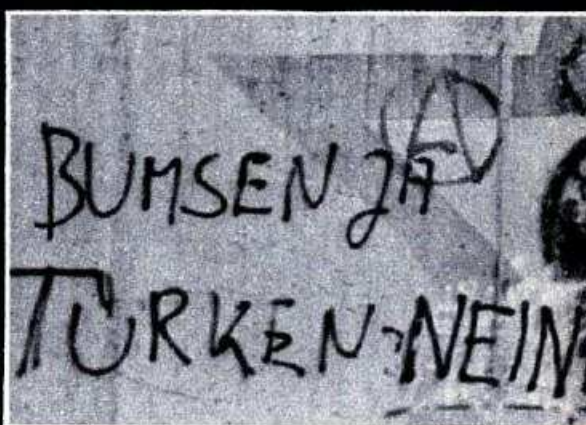 BUMSEN JA
TÜRKEN-NEIN